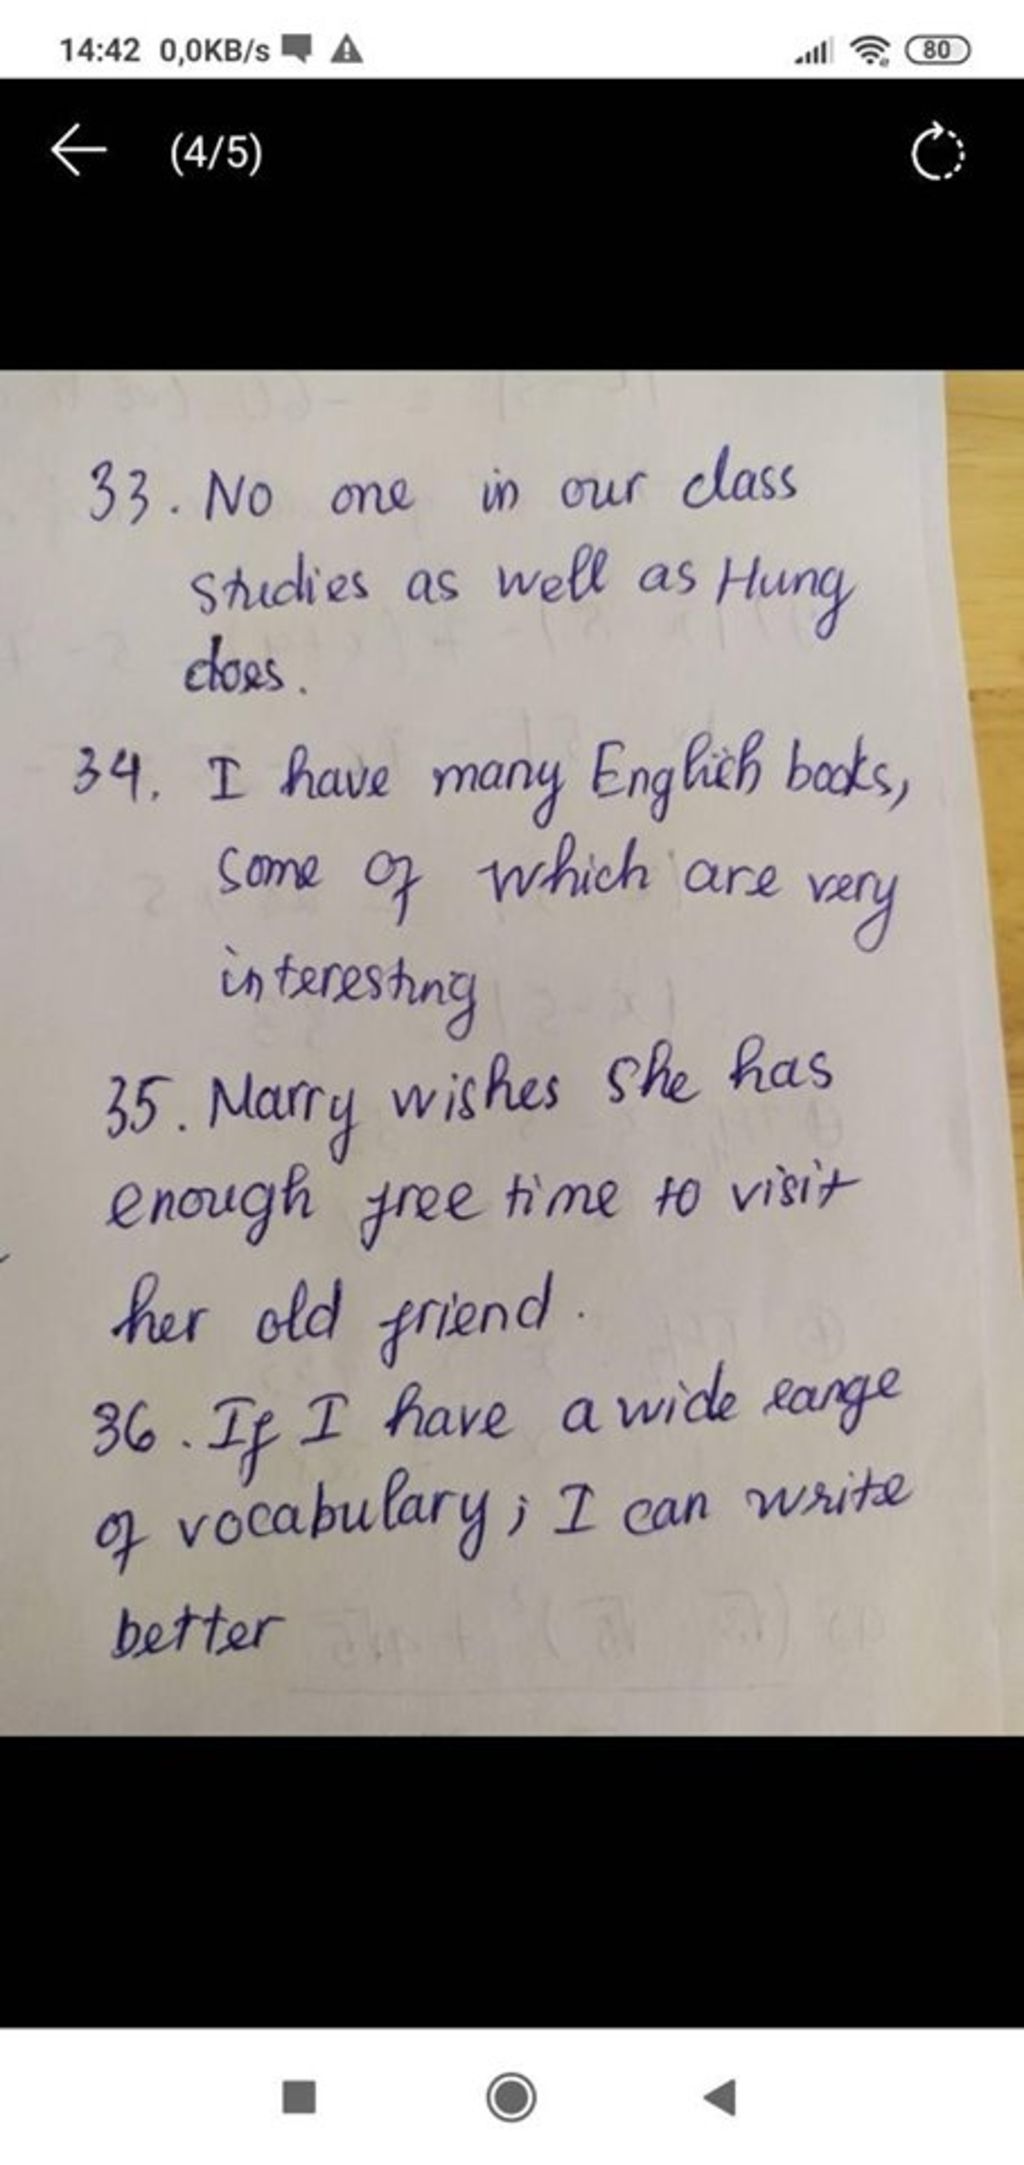 14:42 0,0KB/s 80
(4/5)
33. No one in our class
studies as well as Hung
does.
34. I have many Englich books,
some of which are very
interesting
35. Marry wishes she has
enough free time to visit
her old friend.
36. If I have a wide range
of vocabulary; I can write
better